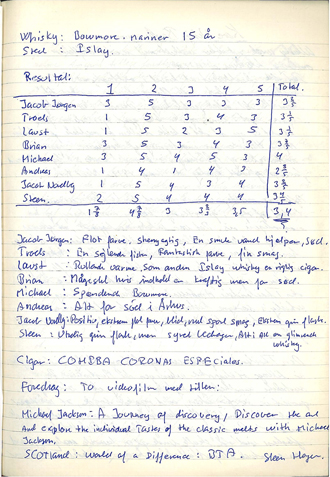 Whisky: Bowmore. mariner 15 år
Sted: Islay.
Resultat:
1 2 3 4 5 Total.
Jacob Jørgen 3 5 3 3 3
Troels 1 5 3 4 3
Laust 1 5 2 3 5
Brian 3 5 3 4 3
Michael 3 5 4 5 3 4
Andreas 1 4 1 4 3
Jacob Nødby 1 5 4 3 4
Steen. 2 5 4 4 4
3 3,4
Jacob Jørgen: Flot farve. En smule vand hjælper, sød.
Troels : En sejlende fisk, Fantastisk farve, fin smag.
Laust : Rullende varme, Som anden Islay whisky en rigtig cigar.
Brian : hvis indhold en kraftig men for sød.
Michael : Spændende Bowmore.
Andreas : Alt for sød i Århus.
Jacob Nødby: Positiv, ekstrem flot farve, Mild, sød sprød smag, Ekstrem grim flaske.
Steen : Utrolig grim flaske, men Alt i Alt en glimrende
whisky.
Cigar: COHIBA CORONAS ESPECIALES.
Foredrag: To videofilm med titlen:
Michael Jackson: A Journey of discovery, Discover the art
and explore the individual Tastes of the classic malts with Michael
Jackson.
SCOTland: World of a Difference: BTA.
Steen